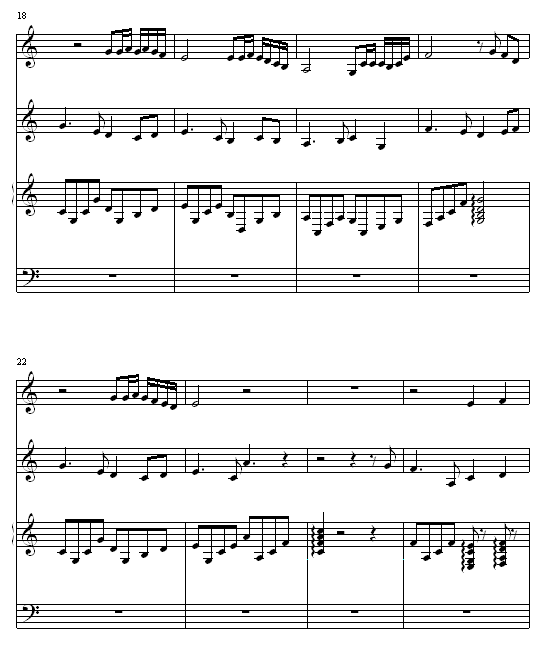 18
22